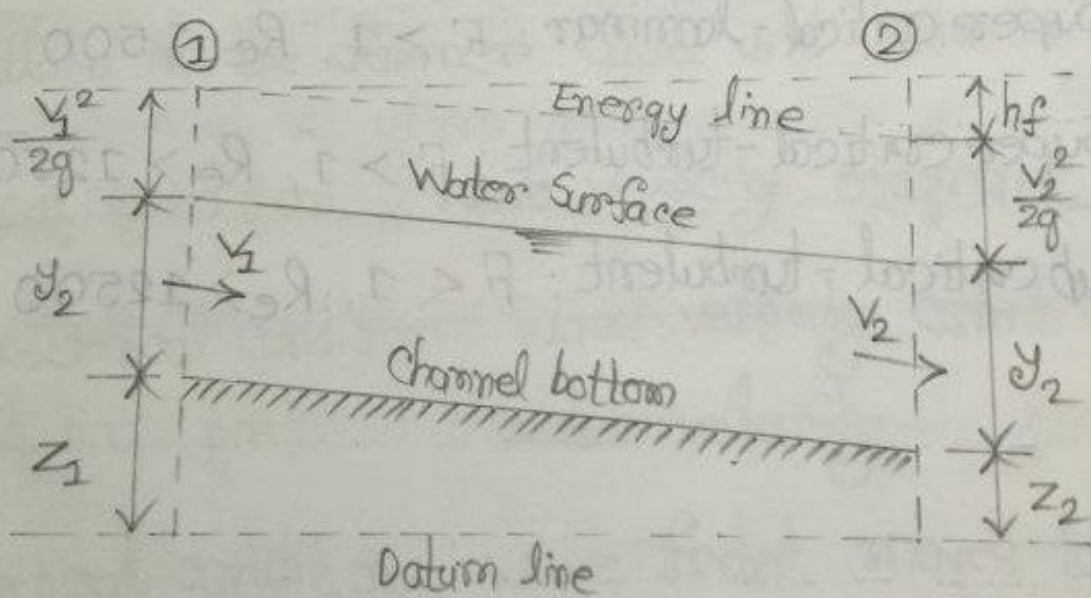 ① ②
V₁²/2g Energy line hf
Water Surface V₂²/2g
V₁
y₂ V₂
Channel bottom y₂
Z₁ Z₂
Datum line